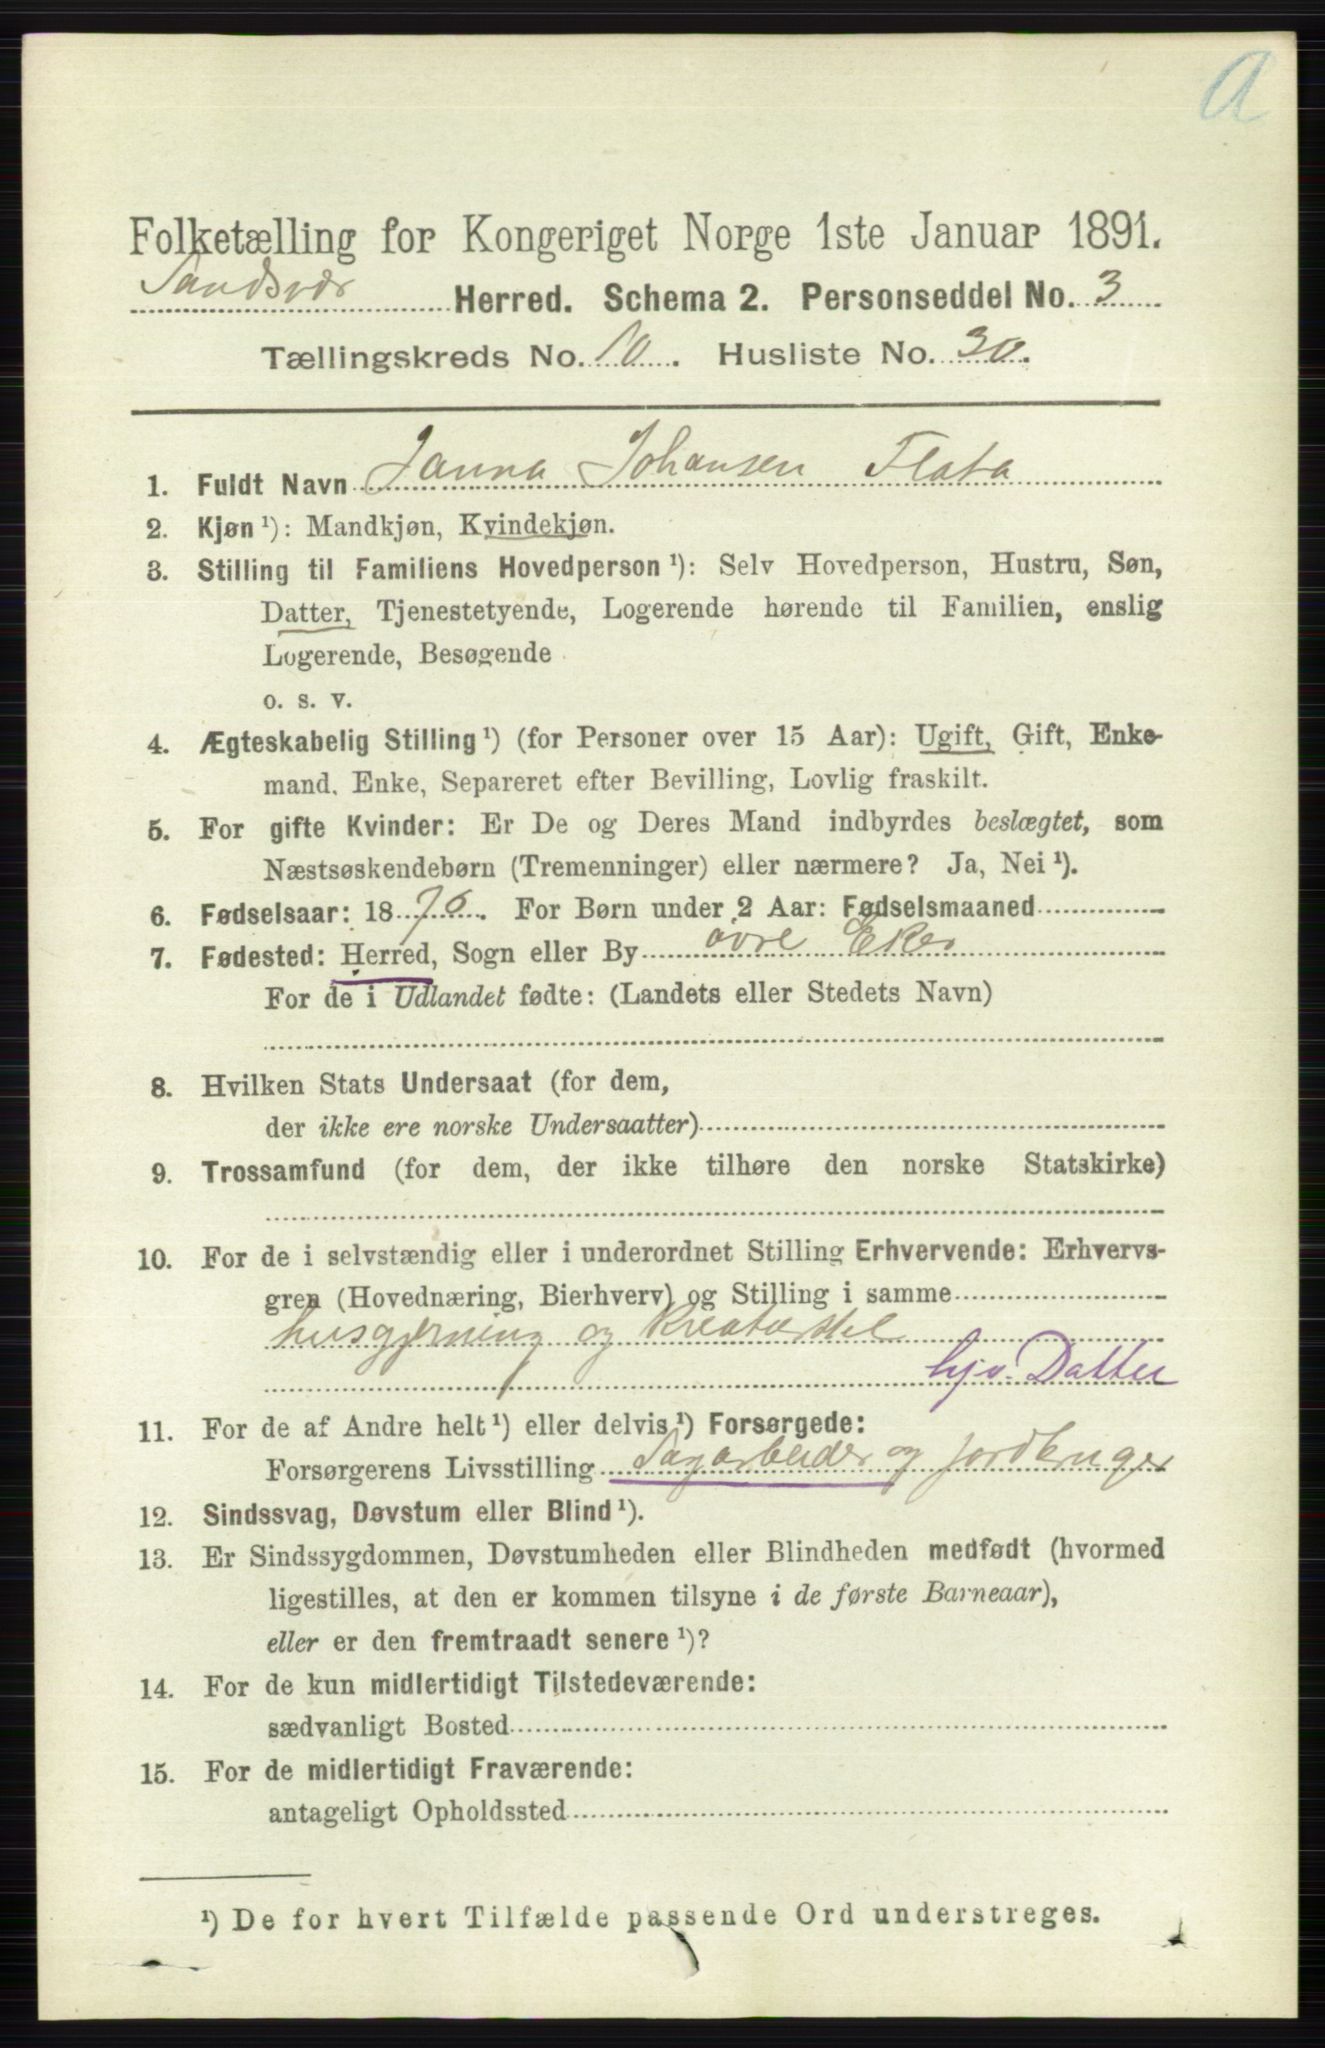 A
Folketælling for Kongeriget Norge 1ste Januar 1891.
Sandsvær Herred. Schema 2. Personseddel No. 3
Tællingskreds No. 10. Husliste No. 30.
1. Fuldt Navn Janna Johansen Flata
2. Kjøn ¹): Mandkjøn, Kvindekjøn.
3. Stilling til Familiens Hovedperson ¹): Selv Hovedperson, Hustru, Søn,
Datter, Tjenestetyende, Logerende hørende til Familien, enslig
Logerende, Besøgende
o. s. v.
4. Ægteskabelig Stilling ¹) (for Personer over 15 Aar): Ugift, Gift, Enke-
mand, Enke, Separeret efter Bevilling, Lovlig fraskilt.
5. For gifte Kvinder: Er De og Deres Mand indbyrdes beslægtet, som
Næstsøskendebørn (Tremenninger) eller nærmere? Ja, Nei ¹).
6. Fødselsaar: 1876. For Børn under 2 Aar: Fødselsmaaned
7. Fødested: Herred, Sogn eller By øvre Eker
For de i Udlandet fødte: (Landets eller Stedets Navn)
8. Hvilken Stats Undersaat (for dem,
der ikke ere norske Undersaatter)
9. Trossamfund (for dem, der ikke tilhøre den norske Statskirke)
10. For de i selvstændig eller i underordnet Stilling Erhvervende: Erhvervs-
gren (Hovednæring, Bierhverv) og Stilling i samme
husgjerning og Kreaturstel
hjv. Datter
11. For de af Andre helt ¹) eller delvis ¹) Forsørgede:
Forsørgerens Livsstilling Sagarbeider og jordbruger
12. Sindssvag, Døvstum eller Blind ¹).
13. Er Sindssygdommen, Døvstumheden eller Blindheden medfødt (hvormed
ligestilles, at den er kommen tilsyne i de første Barneaar),
eller er den fremtraadt senere ¹)?
14. For de kun midlertidigt Tilstedeværende:
sædvanligt Bosted
15. For de midlertidigt Fraværende:
antageligt Opholdssted
¹) De for hvert Tilfælde passende Ord understreges.